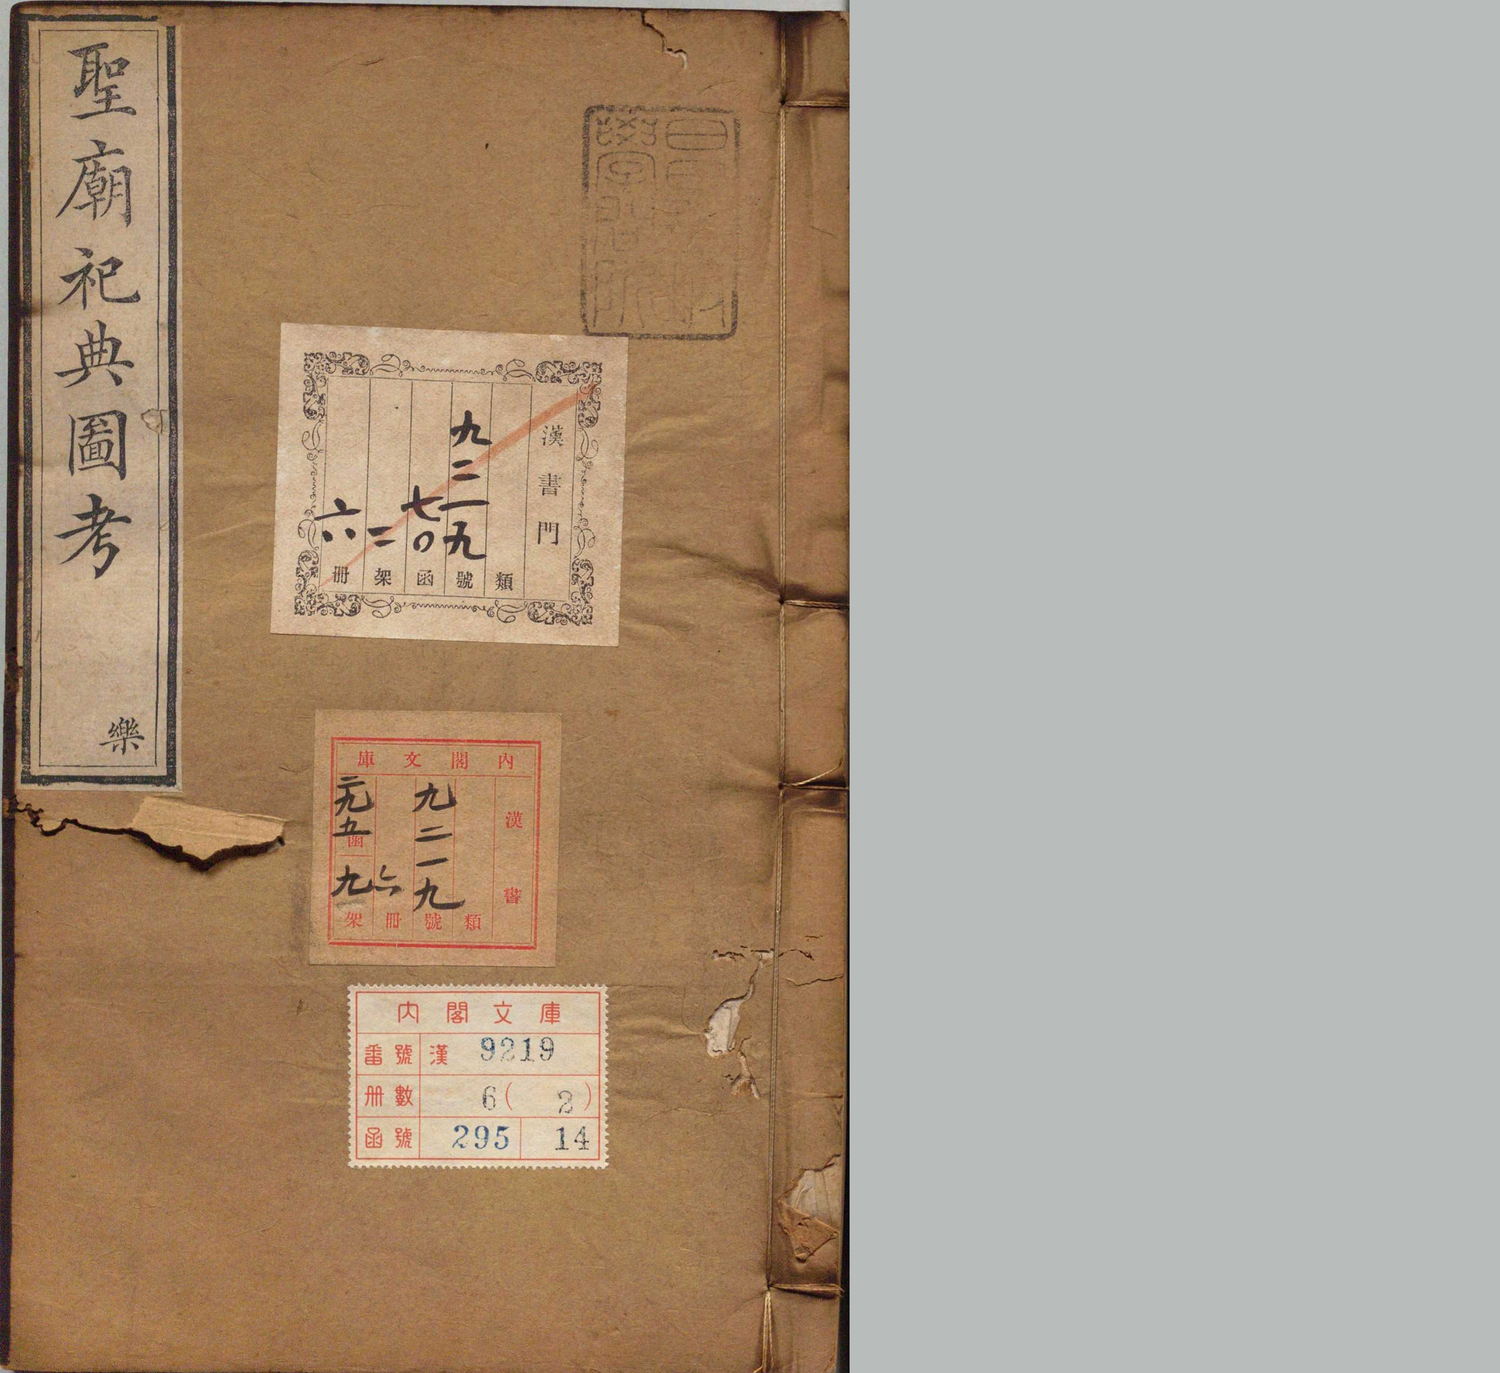 聖廟祀典圖考
樂
漢書門
類
九二一九號
七〇函
二架
六冊
內閣文庫
漢書
類
九二一九號
六冊
二九五函
九架
內閣文庫
番號 漢 9219
冊數 6(2)
函號 295 14